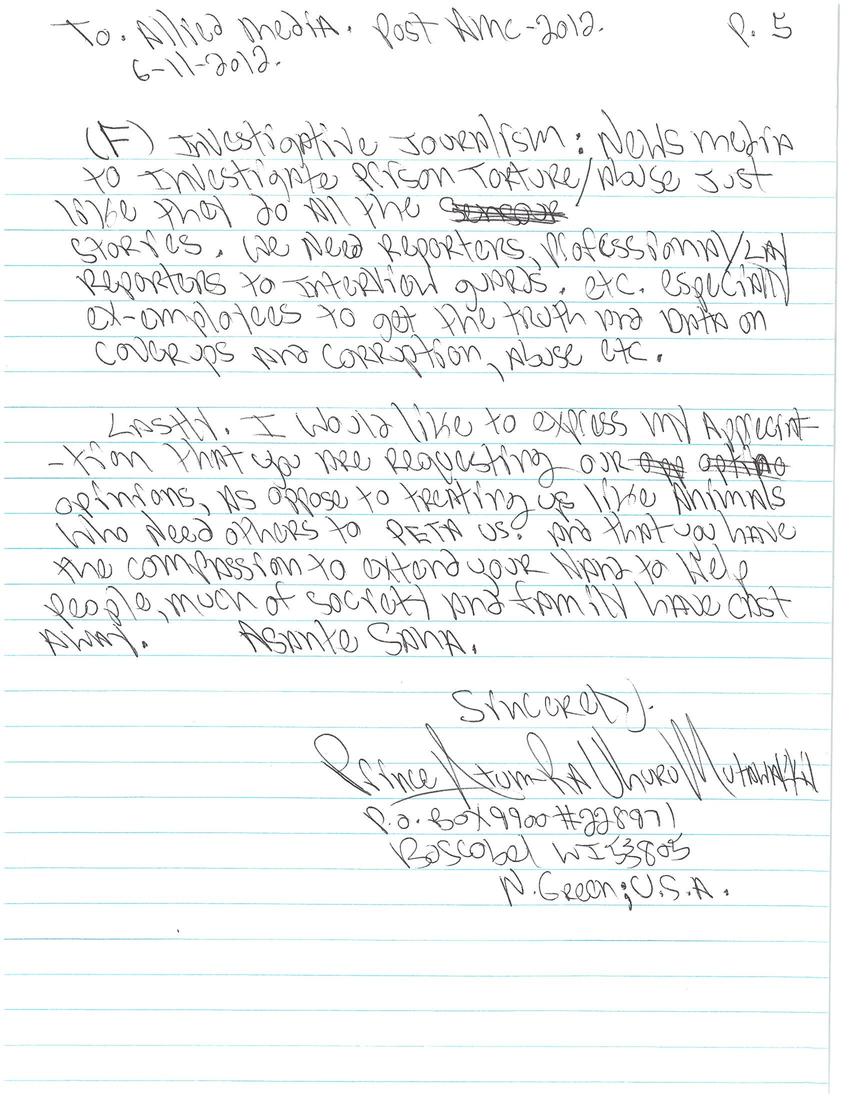 To. Allied Media. Post AMC-2012. P. 5
6-11-2012.
(F) Investigative Journalism: News media
to investigate prison Torture/Abuse just
like they do all the
stories. We need reporters, professional/Lay
reporters to interview guards. etc. especially
ex-employees to get the truth and data on
coverups and corruption, abuse etc.
Lastly. I would like to express my appreciat-
-tion that you are requesting our
opinions, as oppose to treating us like animals
who need others to PETA us. And that you have
the compassion to extend your hand to help
people, much of society and family have cast
away. Asante Sana.
Sincerely.
Prince Atum-Ra Uhuru Mutawakkil
P.O. Box 9900 #228971
Boscobel WI 53805
N. Green; U.S.A.